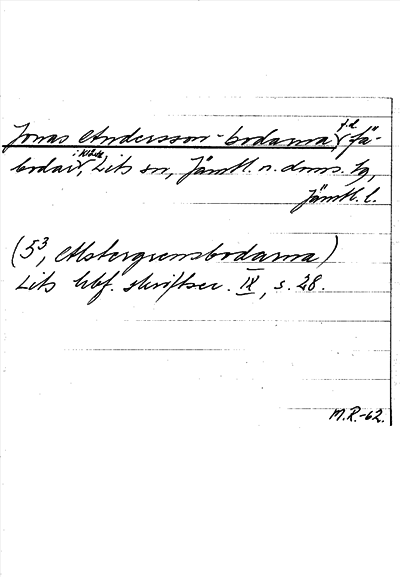 Jonas Andersson-bodarna, f.d. fä-
bodar i Klösta, Lits sn, Jämtl. n. doms. tg,
Jämtl. l.
(5³, Mstergrensbodarna)
Lits hbf. skriftser. IX, s. 28.
M.R.-62.